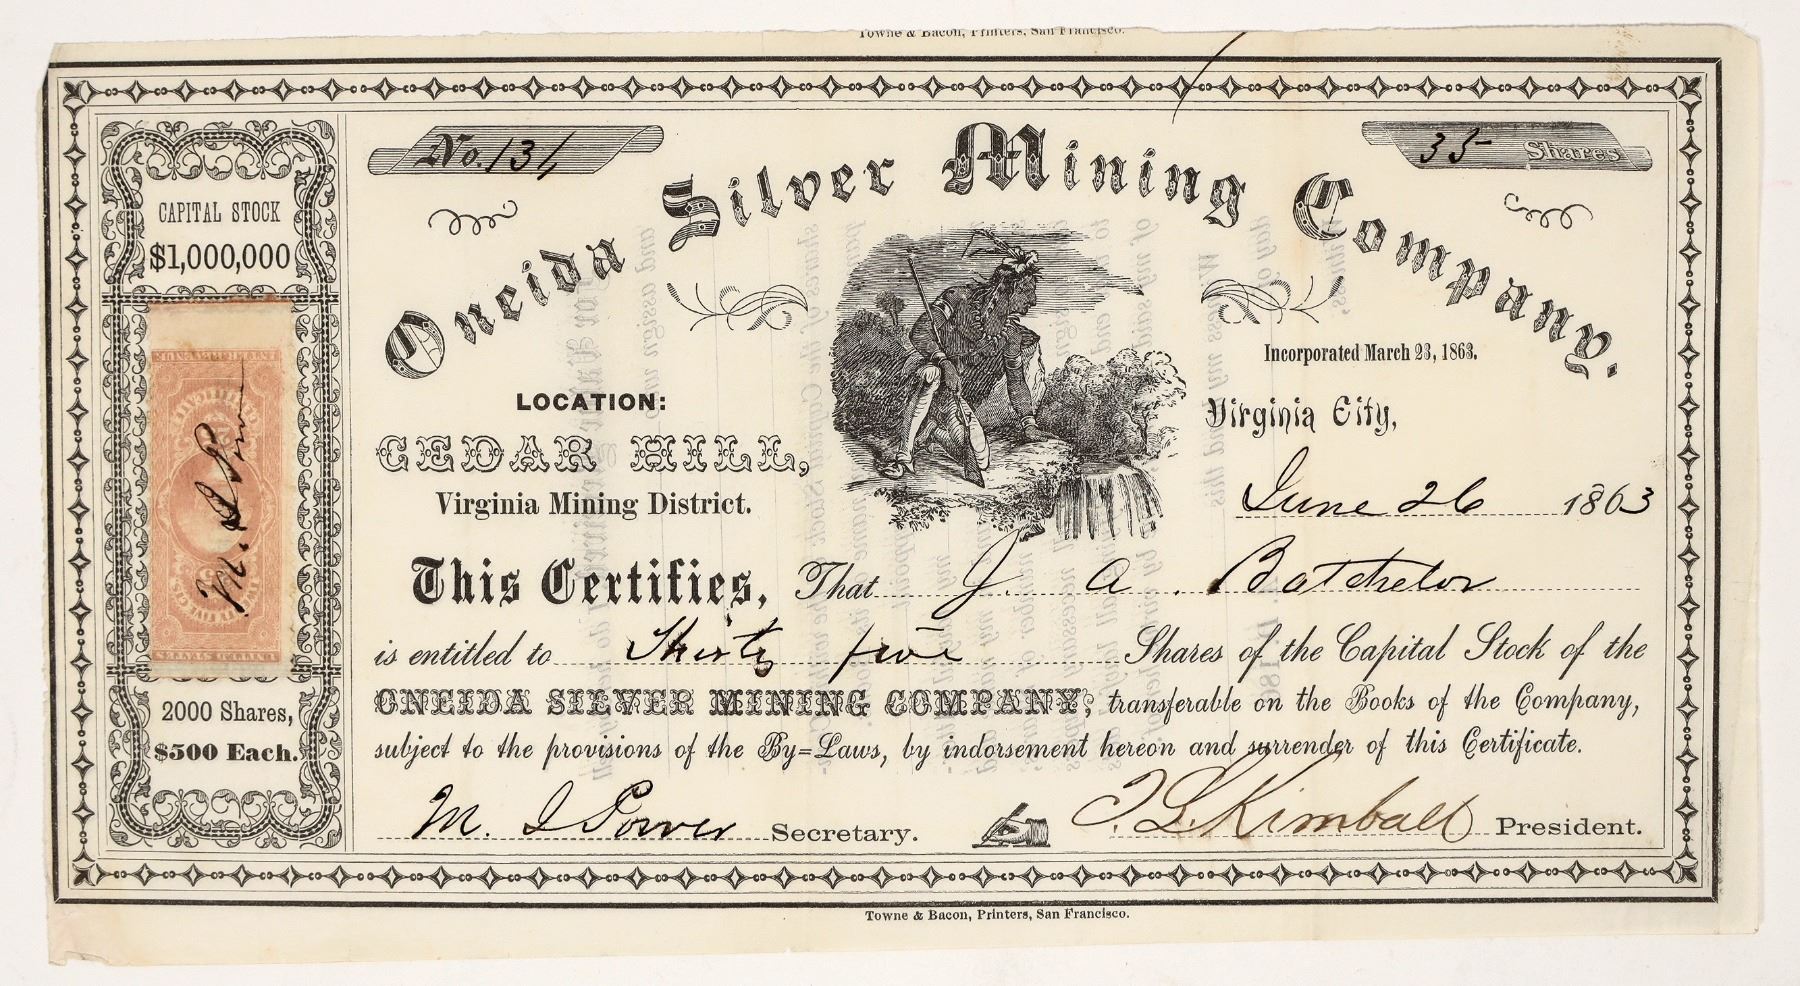 Towne & Bacon, Printers, San Francisco.
No. 131
35 Shares
Oneida Silver Mining Company.
CAPITAL STOCK
$1,000,000
Incorporated March 23, 1863.
LOCATION:
CEDAR HILL,
Virginia Mining District.
Virginia City,
June 26 1863
INTER. REVENUE
UNITED STATES
This Certifies, That J. A. Batchelor
is entitled to Thirty five Shares of the Capital Stock of the
ONEIDA SILVER MINING COMPANY, transferable on the Books of the Company,
subject to the provisions of the By=Laws, by indorsement hereon and surrender of this Certificate.
2000 Shares,
$500 Each.
M. J Power Secretary.
T. L. Kimball President.
Towne & Bacon, Printers, San Francisco.